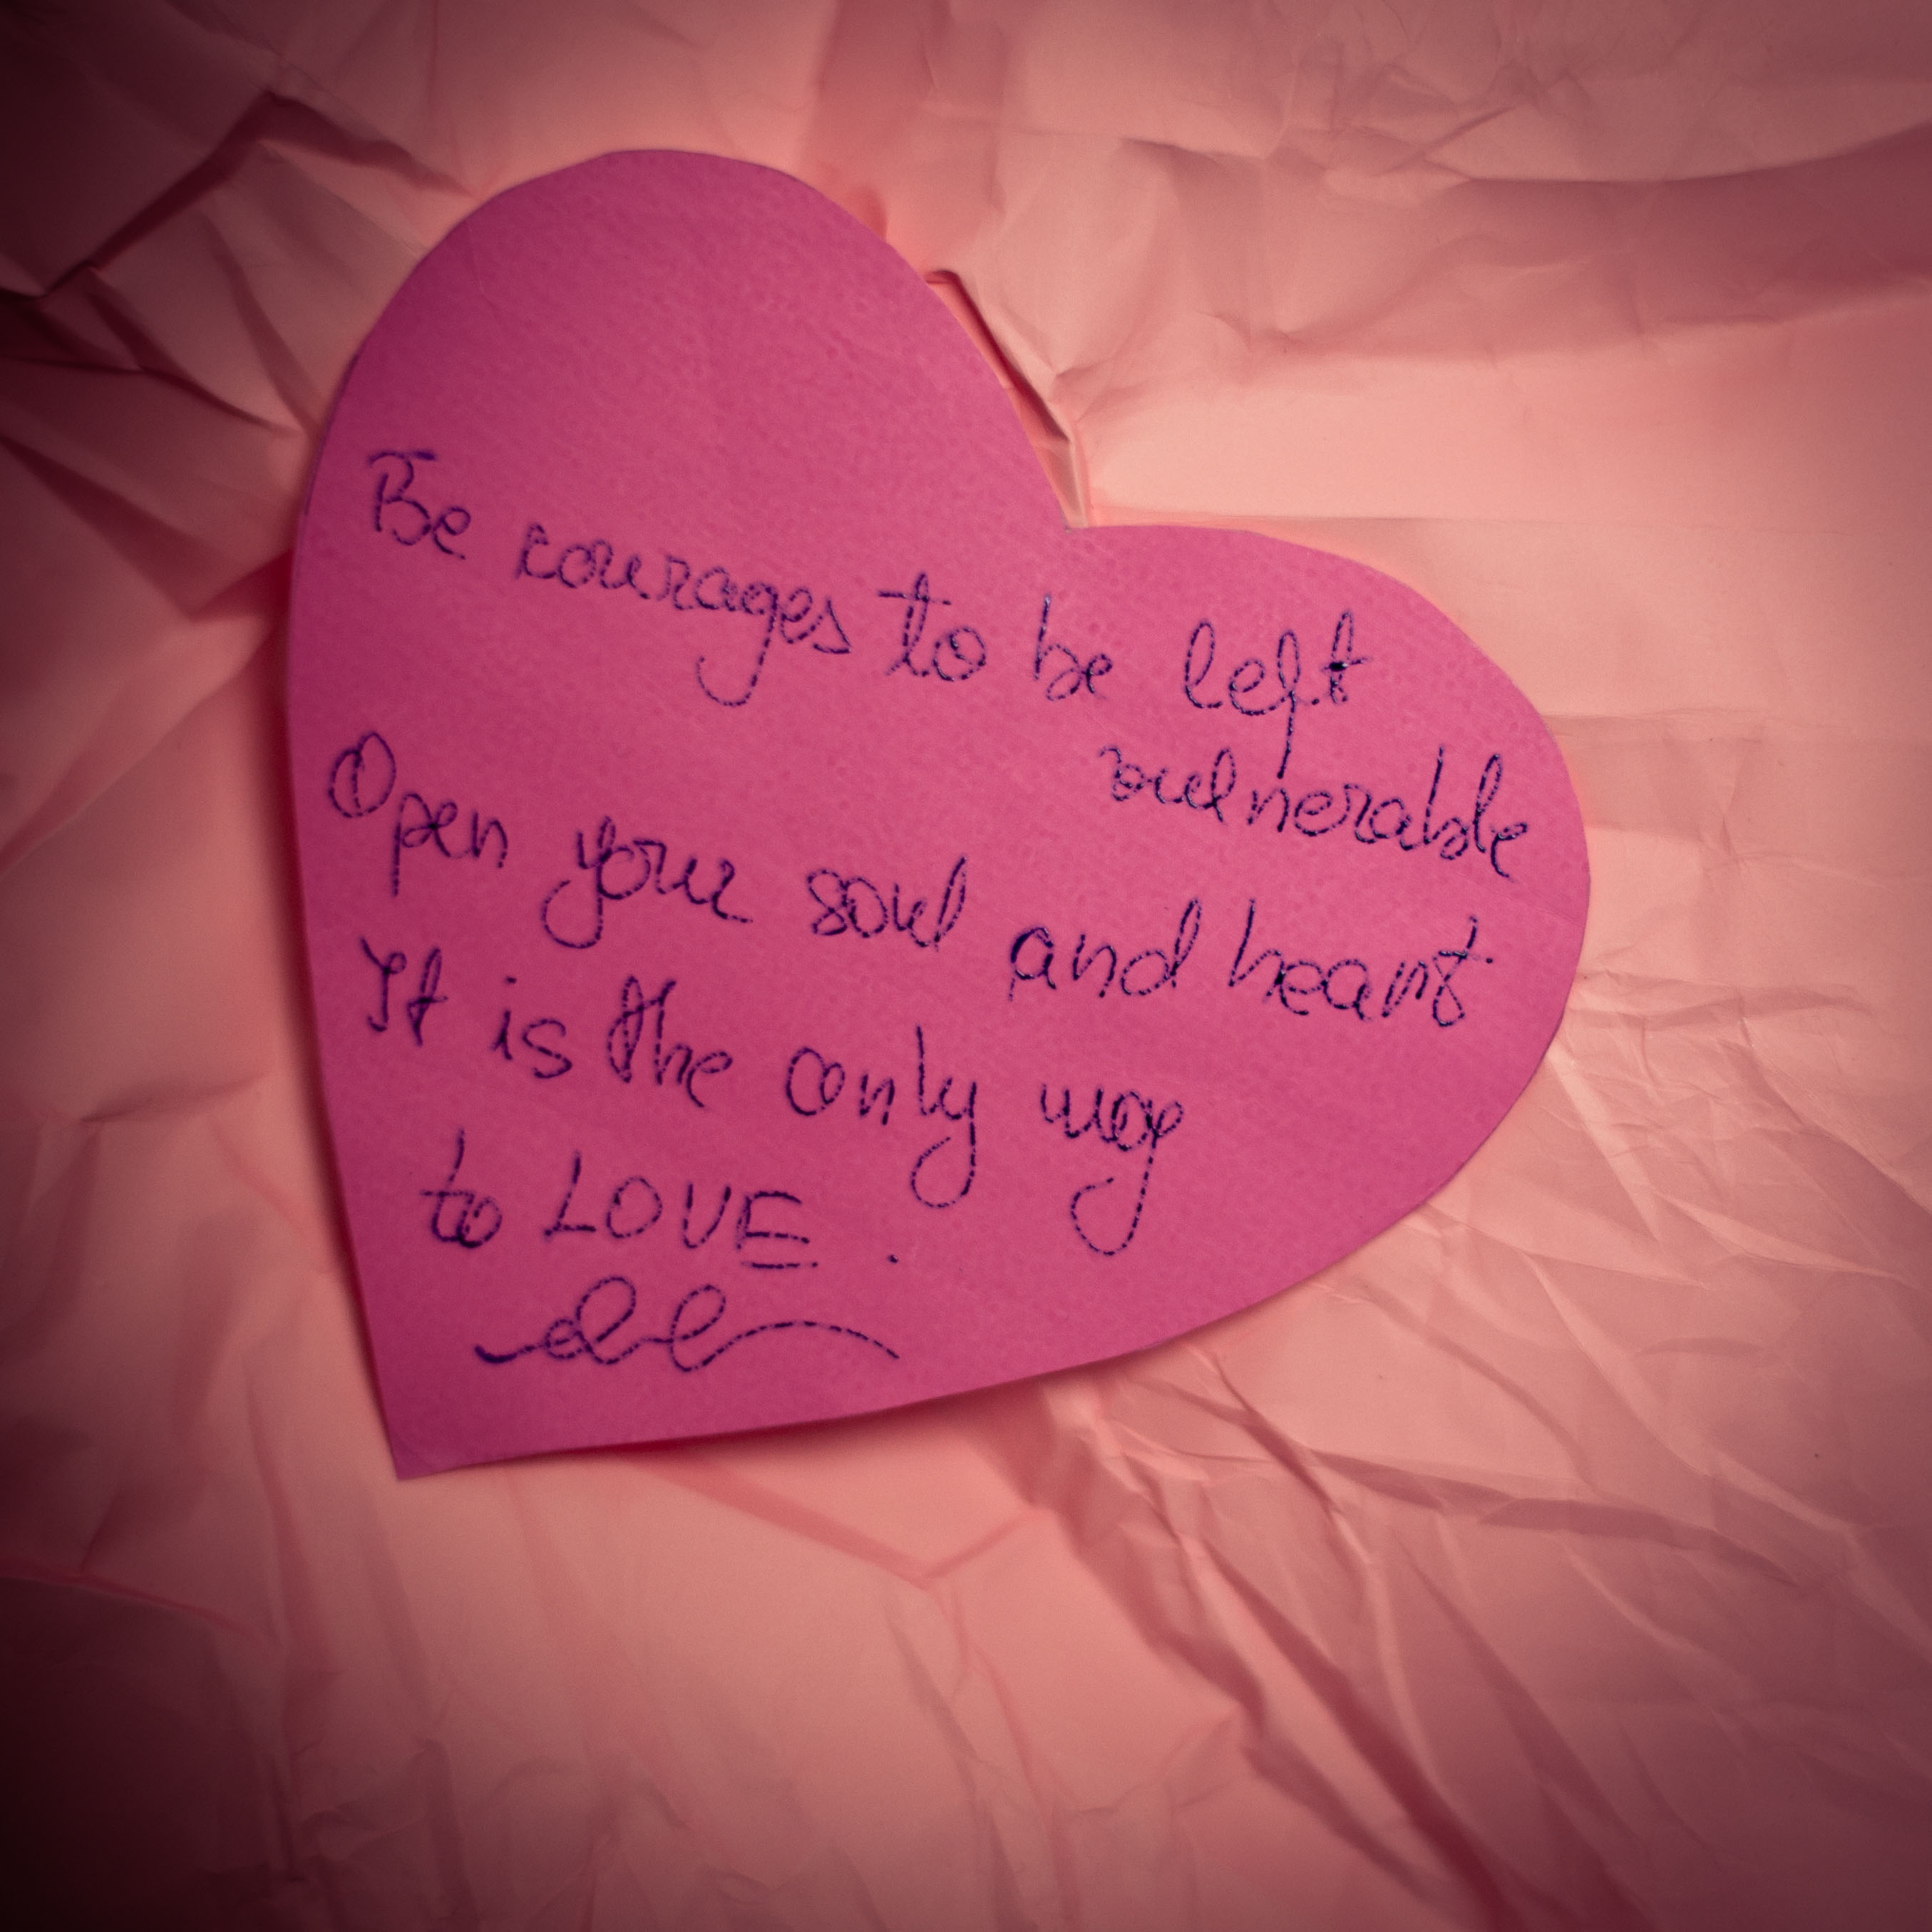 Be courages to be left
vulnerable
Open your soul and heart
It is the only way
to LOVE.